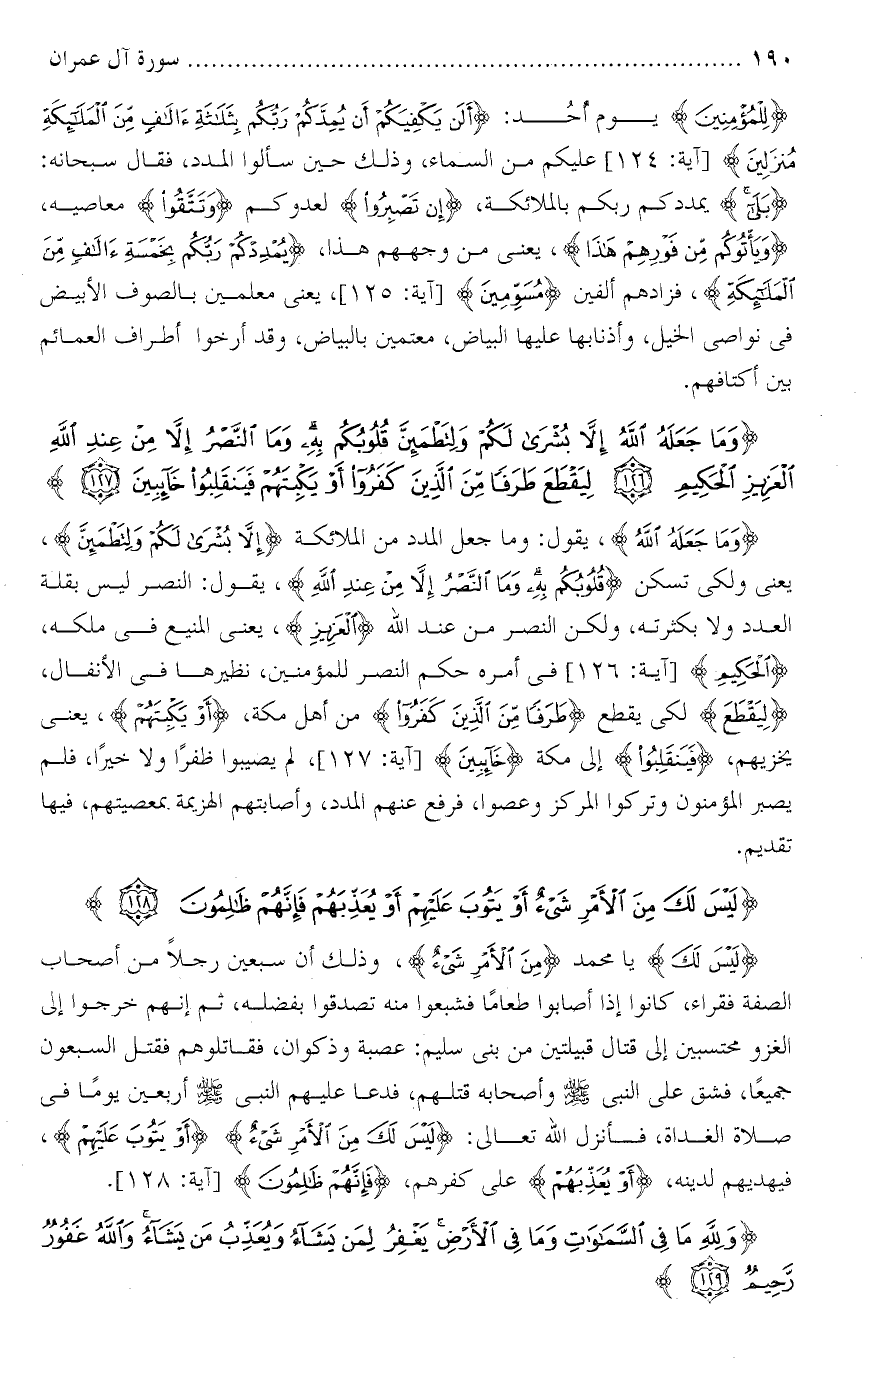 ١٩٠ ........................................................................ سورة آل عمران
﴿لِلْمُؤْمِنِينَ﴾ يـــوم أُحُـــد: ﴿أَلَن يَكْفِيَكُمْ أَن يُمِدَّكُمْ رَبُّكُم بِثَلَاثَةِ ءَالَافٍ مِّنَ الْمَلَائِكَةِ
مُنزَلِينَ﴾ [آية: ١٢٤] عليكم من السماء، وذلك حين سألوا المدد، فقال سبحانه:
﴿بَلَىٰ﴾ يمددكم ربكم بالملائكة، ﴿إِن تَصْبِرُوا﴾ لعدوكم ﴿وَتَتَّقُوا﴾ معاصيه،
﴿وَيَأْتُوكُم مِّن فَوْرِهِمْ هَٰذَا﴾، يعنى من وجههم هذا، ﴿يُمْدِدْكُمْ رَبُّكُم بِخَمْسَةِ ءَالَافٍ مِّنَ
الْمَلَائِكَةِ﴾، فزادهم ألفين ﴿مُسَوِّمِينَ﴾ [آية: ١٢٥]، يعنى معلمين بالصوف الأبيض
فى نواصى الخيل، وأذنابها عليها البياض، معتمين بالبياض، وقد أرخوا أطراف العمائم
بين أكتافهم.
﴿وَمَا جَعَلَهُ اللَّهُ إِلَّا بُشْرَىٰ لَكُمْ وَلِتَطْمَئِنَّ قُلُوبُكُم بِهِ وَمَا النَّصْرُ إِلَّا مِنْ عِندِ اللَّهِ
الْعَزِيزِ الْحَكِيمِ ١٢٦ لِيَقْطَعَ طَرَفًا مِّنَ الَّذِينَ كَفَرُوا أَوْ يَكْبِتَهُمْ فَيَنقَلِبُوا خَائِبِينَ ١٢٧﴾
﴿وَمَا جَعَلَهُ اللَّهُ﴾، يقول: وما جعل المدد من الملائكة ﴿إِلَّا بُشْرَىٰ لَكُمْ وَلِتَطْمَئِنَّ﴾،
يعنى ولكى تسكن ﴿قُلُوبُكُم بِهِ وَمَا النَّصْرُ إِلَّا مِنْ عِندِ اللَّهِ﴾، يقول: النصر ليس بقلة
العدد ولا بكثرته، ولكن النصر من عند الله ﴿الْعَزِيزِ﴾، يعنى المنيع فى ملكه،
﴿الْحَكِيمِ﴾ [آية: ١٢٦] فى أمره حكم النصر للمؤمنين، نظيرها فى الأنفال،
﴿لِيَقْطَعَ﴾ لكى يقطع ﴿طَرَفًا مِّنَ الَّذِينَ كَفَرُوا﴾ من أهل مكة، ﴿أَوْ يَكْبِتَهُمْ﴾، يعنى
يخزيهم، ﴿فَيَنقَلِبُوا﴾ إلى مكة ﴿خَائِبِينَ﴾ [آية: ١٢٧]، لم يصيبوا ظفرًا ولا خيرًا، فلم
يصبر المؤمنون وتركوا المركز وعصوا، فرفع عنهم المدد، وأصابتهم الهزيمة بمعصيتهم، فيها
تقديم.
﴿لَيْسَ لَكَ مِنَ الْأَمْرِ شَيْءٌ أَوْ يَتُوبَ عَلَيْهِمْ أَوْ يُعَذِّبَهُمْ فَإِنَّهُمْ ظَالِمُونَ ١٢٨﴾
﴿لَيْسَ لَكَ﴾ يا محمد ﴿مِنَ الْأَمْرِ شَيْءٌ﴾، وذلك أن سبعين رجلاً من أصحاب
الصفة فقراء، كانوا إذا أصابوا طعامًا فشبعوا منه تصدقوا بفضله، ثم إنهم خرجوا إلى
الغزو محتسبين إلى قتال قبيلتين من بنى سليم: عصبة وذكوان، فقاتلوهم فقتل السبعون
جميعًا، فشق على النبى ﷺ وأصحابه قتلهم، فدعا عليهم النبى ﷺ أربعين يومًا فى
صلاة الغداة، فأنزل الله تعالى: ﴿لَيْسَ لَكَ مِنَ الْأَمْرِ شَيْءٌ﴾ ﴿أَوْ يَتُوبَ عَلَيْهِمْ﴾،
فيهديهم لدينه، ﴿أَوْ يُعَذِّبَهُمْ﴾ على كفرهم، ﴿فَإِنَّهُمْ ظَالِمُونَ﴾ [آية: ١٢٨].
﴿وَلِلَّهِ مَا فِي السَّمَاوَاتِ وَمَا فِي الْأَرْضِ يَغْفِرُ لِمَن يَشَاءُ وَيُعَذِّبُ مَن يَشَاءُ وَاللَّهُ غَفُورٌ
رَّحِيمٌ ١٢٩﴾